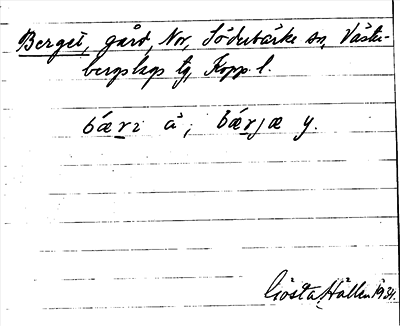 Berget, gård, Nor, Söderbärke sn, Väster-
bergslags tg, Kopp. l.
bæ̂ri å, bǽrjæ y.
Gösta Hallen 1934.